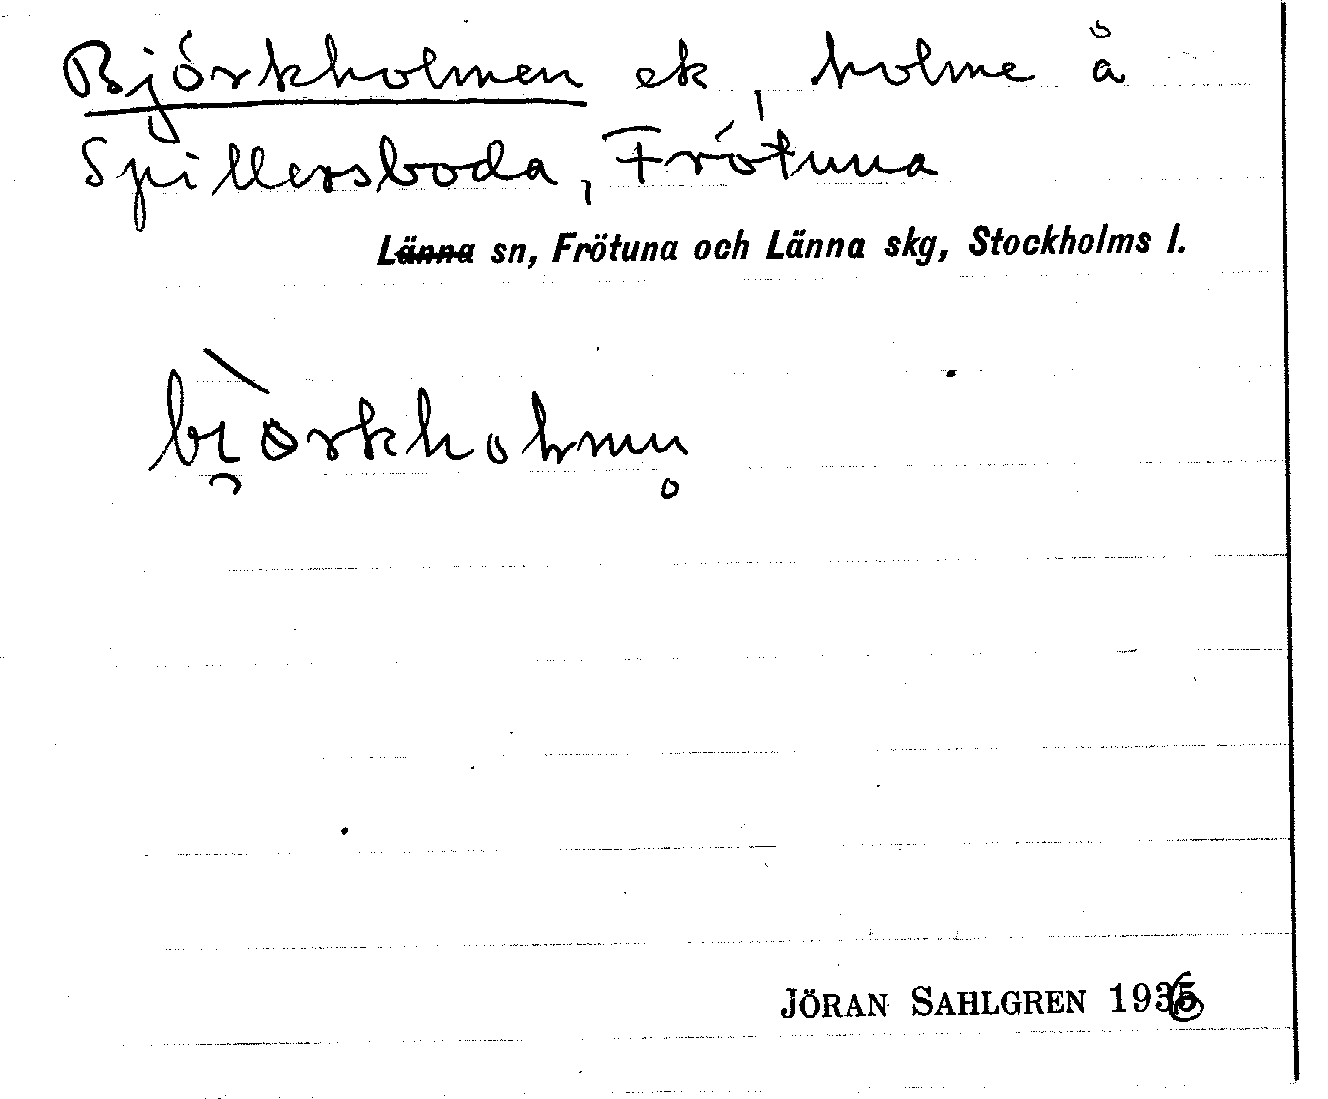 Björkholmen ek, holme å
Spillersboda, Frötuna
Länna sn, Frötuna och Länna skg, Stockholms l.
JÖRAN SAHLGREN 1936